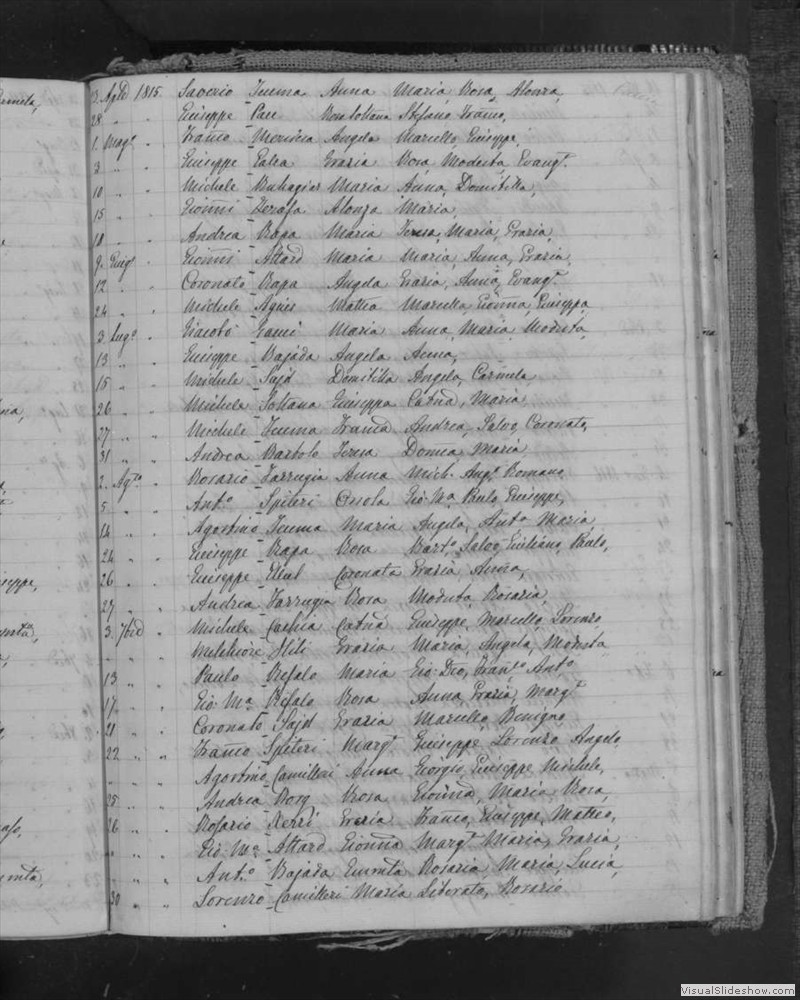 13. Aple 1815. Saverio Teuma Anna Maria, Rosa, Alonza,
28 " " Giuseppe Pace Rosa Stefano Franco,
1. Magº " Franco Angela Marcello, Giuseppe,
3 " " Giuseppe Galea Grazia Rosa, Modesta, Evangta
10 " " Michele Buhagiar Maria Anna, Domitilla,
15 " " Gionni Alonza Maria,
18 " " Andrea Rapa Maria Teresa, Maria, Grazia,
9. Giugº " Gionni Attard Maria Maria, Anna, Grazia,
12 " " Coronato Rapa Angela Grazia, Anna, Evangta
24 " " Michele Agius Mattea Marcella, Gionna, Giuseppa,
3. Lugº " Giacobo Gauci Maria Anna, Maria, Modesta,
13 " " Giuseppe Bajada Angela Anna,
15 " " Michele Sajd Domitilla Angela, Carmela
26 " " Michele Sultana Giuseppa Catna, Maria
27 " " Michele Teuma Franca Andrea, Salvo, Coronato,
31 " " Andrea Bartolo Teresa Maria,
2. Agto " Rosario Farrugia Anna Mich. Angº Romano
5 " " Antº Spiteri Orsola Gio: Mª Paulo, Giuseppe,
14 " " Agostino Teuma Maria Angela, Antª Maria,
24 " " Giuseppe Rapa Rosa Bartº, Salvo, Giuliano, Paulo,
26 " " Giuseppe Coronata Grazia, Anna,
27 " " Andrea Farrugia Rosa Modesta, Rosaria,
3. 7bre " Michele Cachia Catna Giuseppe, Marcello, Lorenzo
" " " Melchiore Hili Grazia Maria, Angela, Modesta
13 " " Paulo Refalo Maria Gio: Deo, Franco Antº
17 " " Gio: Mª Refalo Rosa Anna, Grazia, Margta
21 " " Coronato Sajd Grazia Marcello, Benigno
22 " " Franco Spiteri Margta Giuseppe, Lorenzo, Angelo,
" " Agostino Camilleri Anna Giorgio, Giuseppe, Michele,
25 " " Andrea Borg Rosa Gionna, Maria, Rosa,
26 " " Rosario Xerri Grazia Franco, Giuseppe, Matteo,
" " " Gio: Mª Attard Gionna Margta Maria, Grazia,
" " " Antº Bajada Rosaria, Maria, Lucia,
30 " " Lorenzo Camilleri Maria Liborato, Rosario
VisualSlideshow.com